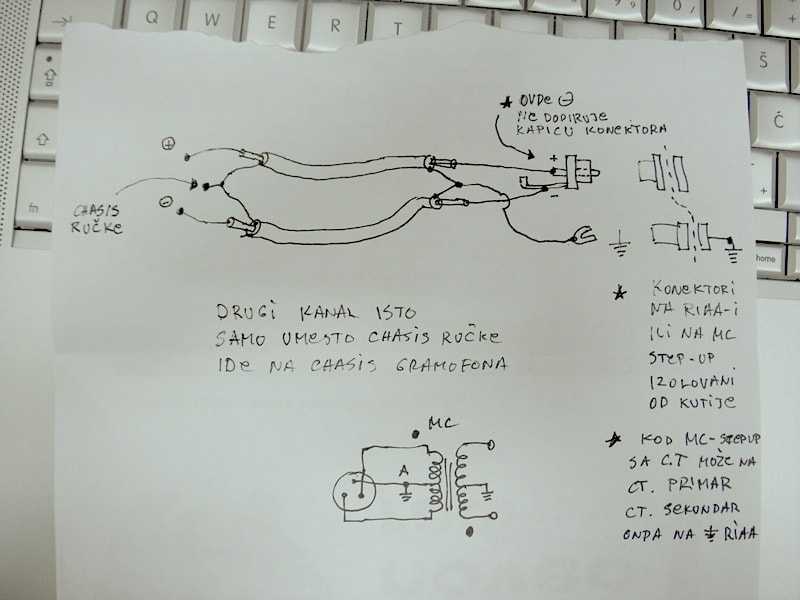 Q W E R T
fn
Š
Č
home
★ OVDE ⊖
NE DODIRUJE
KAPICU KONEKTORA
⊕
+
⊖
-
CHASIS
RUČKE
DRUGI KANAL ISTO
SAMO UMESTO CHASIS RUČKE
IDE NA CHASIS GRAMOFONA
★ KONEKTORI
NA RIAA-i
ILI NA MC
STEP-UP
IZOLOVANI
OD KUTIJE
MC
A
★ KOD MC-STEPUP
SA C.T MOŽE NA
CT. PRIMAR
CT. SEKUNDAR
ONDA NA ⏚ RIAA